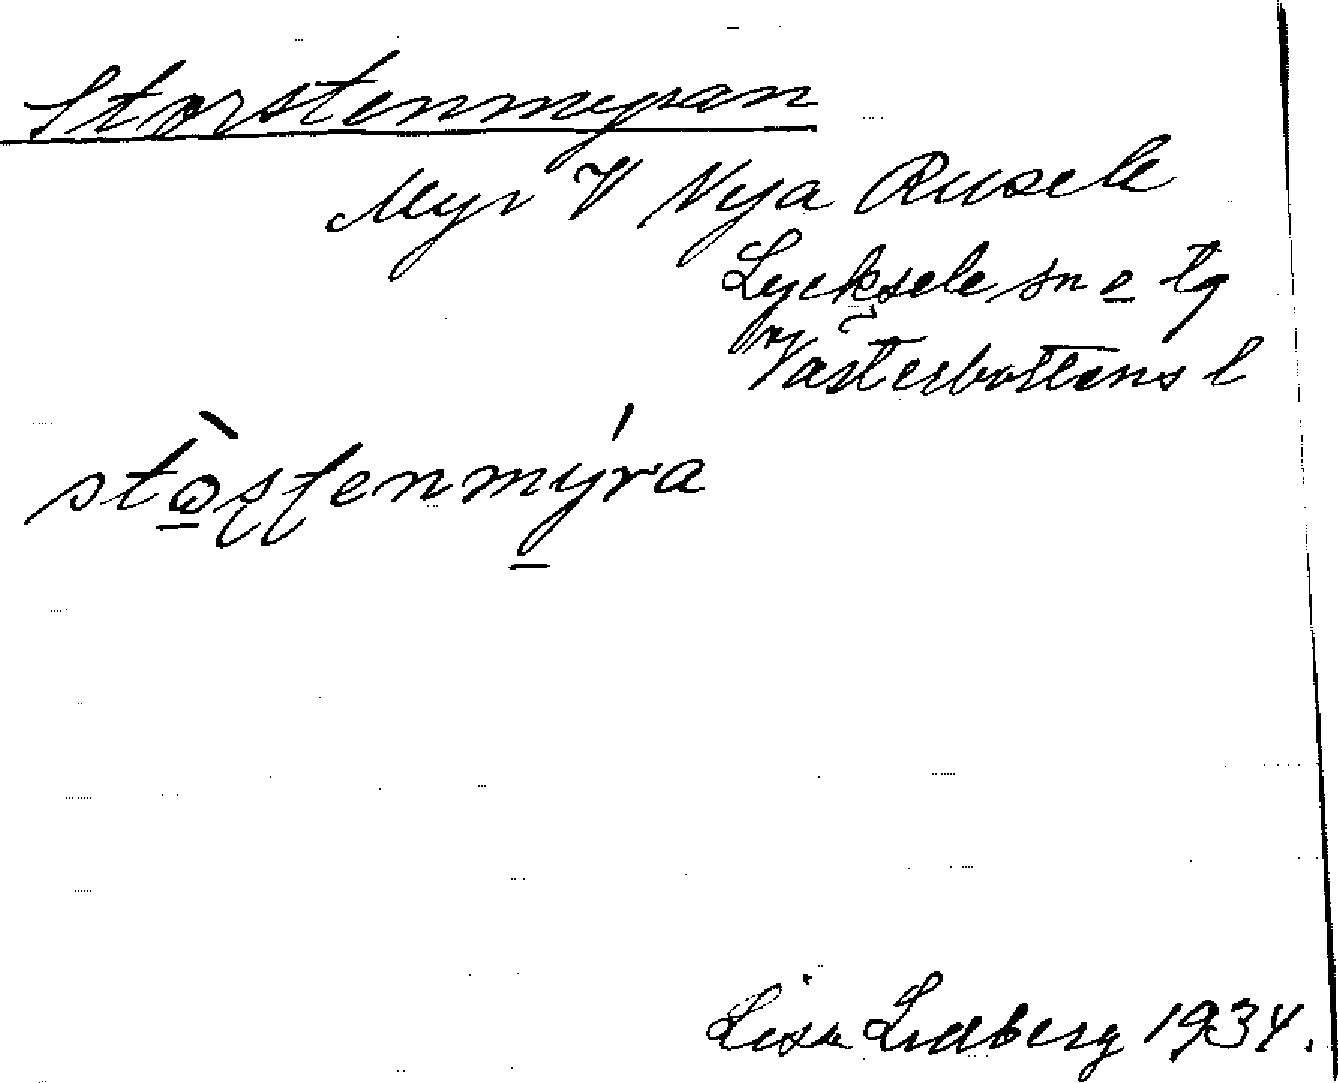 Storstenmyran
Myr V Nya Rusele
Lycksele sn o tg
Västerbottens l
stòʂʈenmýra
Lisa Lidberg 1934.